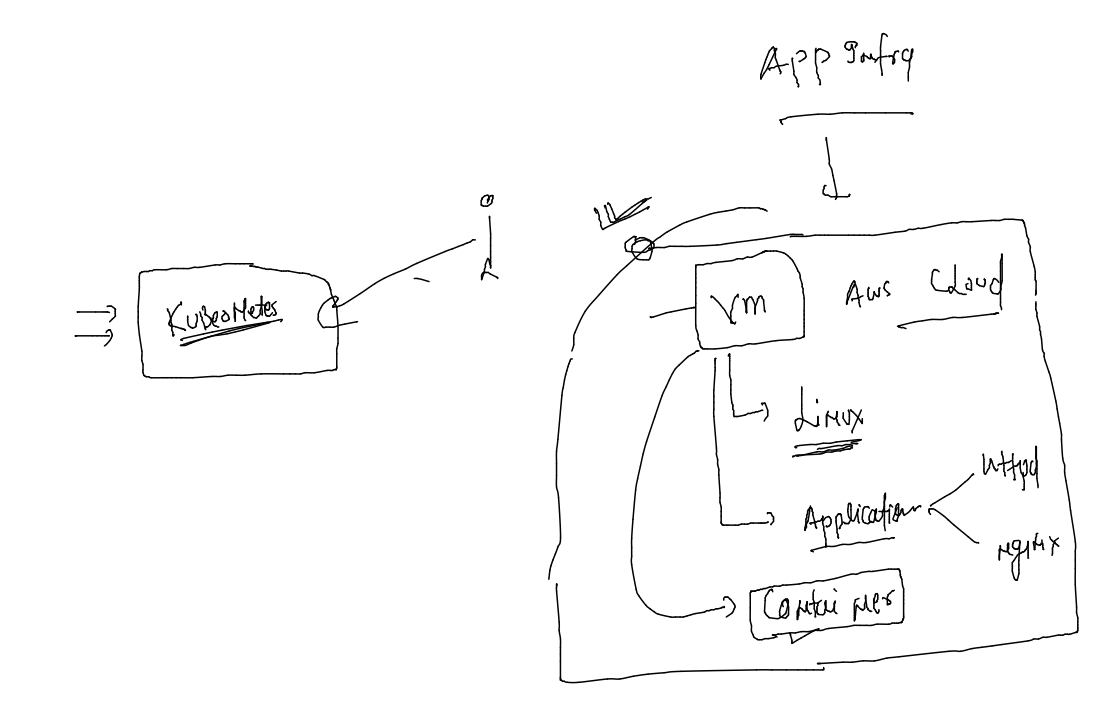 App Infra
Kubernetes
VM
AWS Cloud
Linux
Application
httpd
nginx
Container